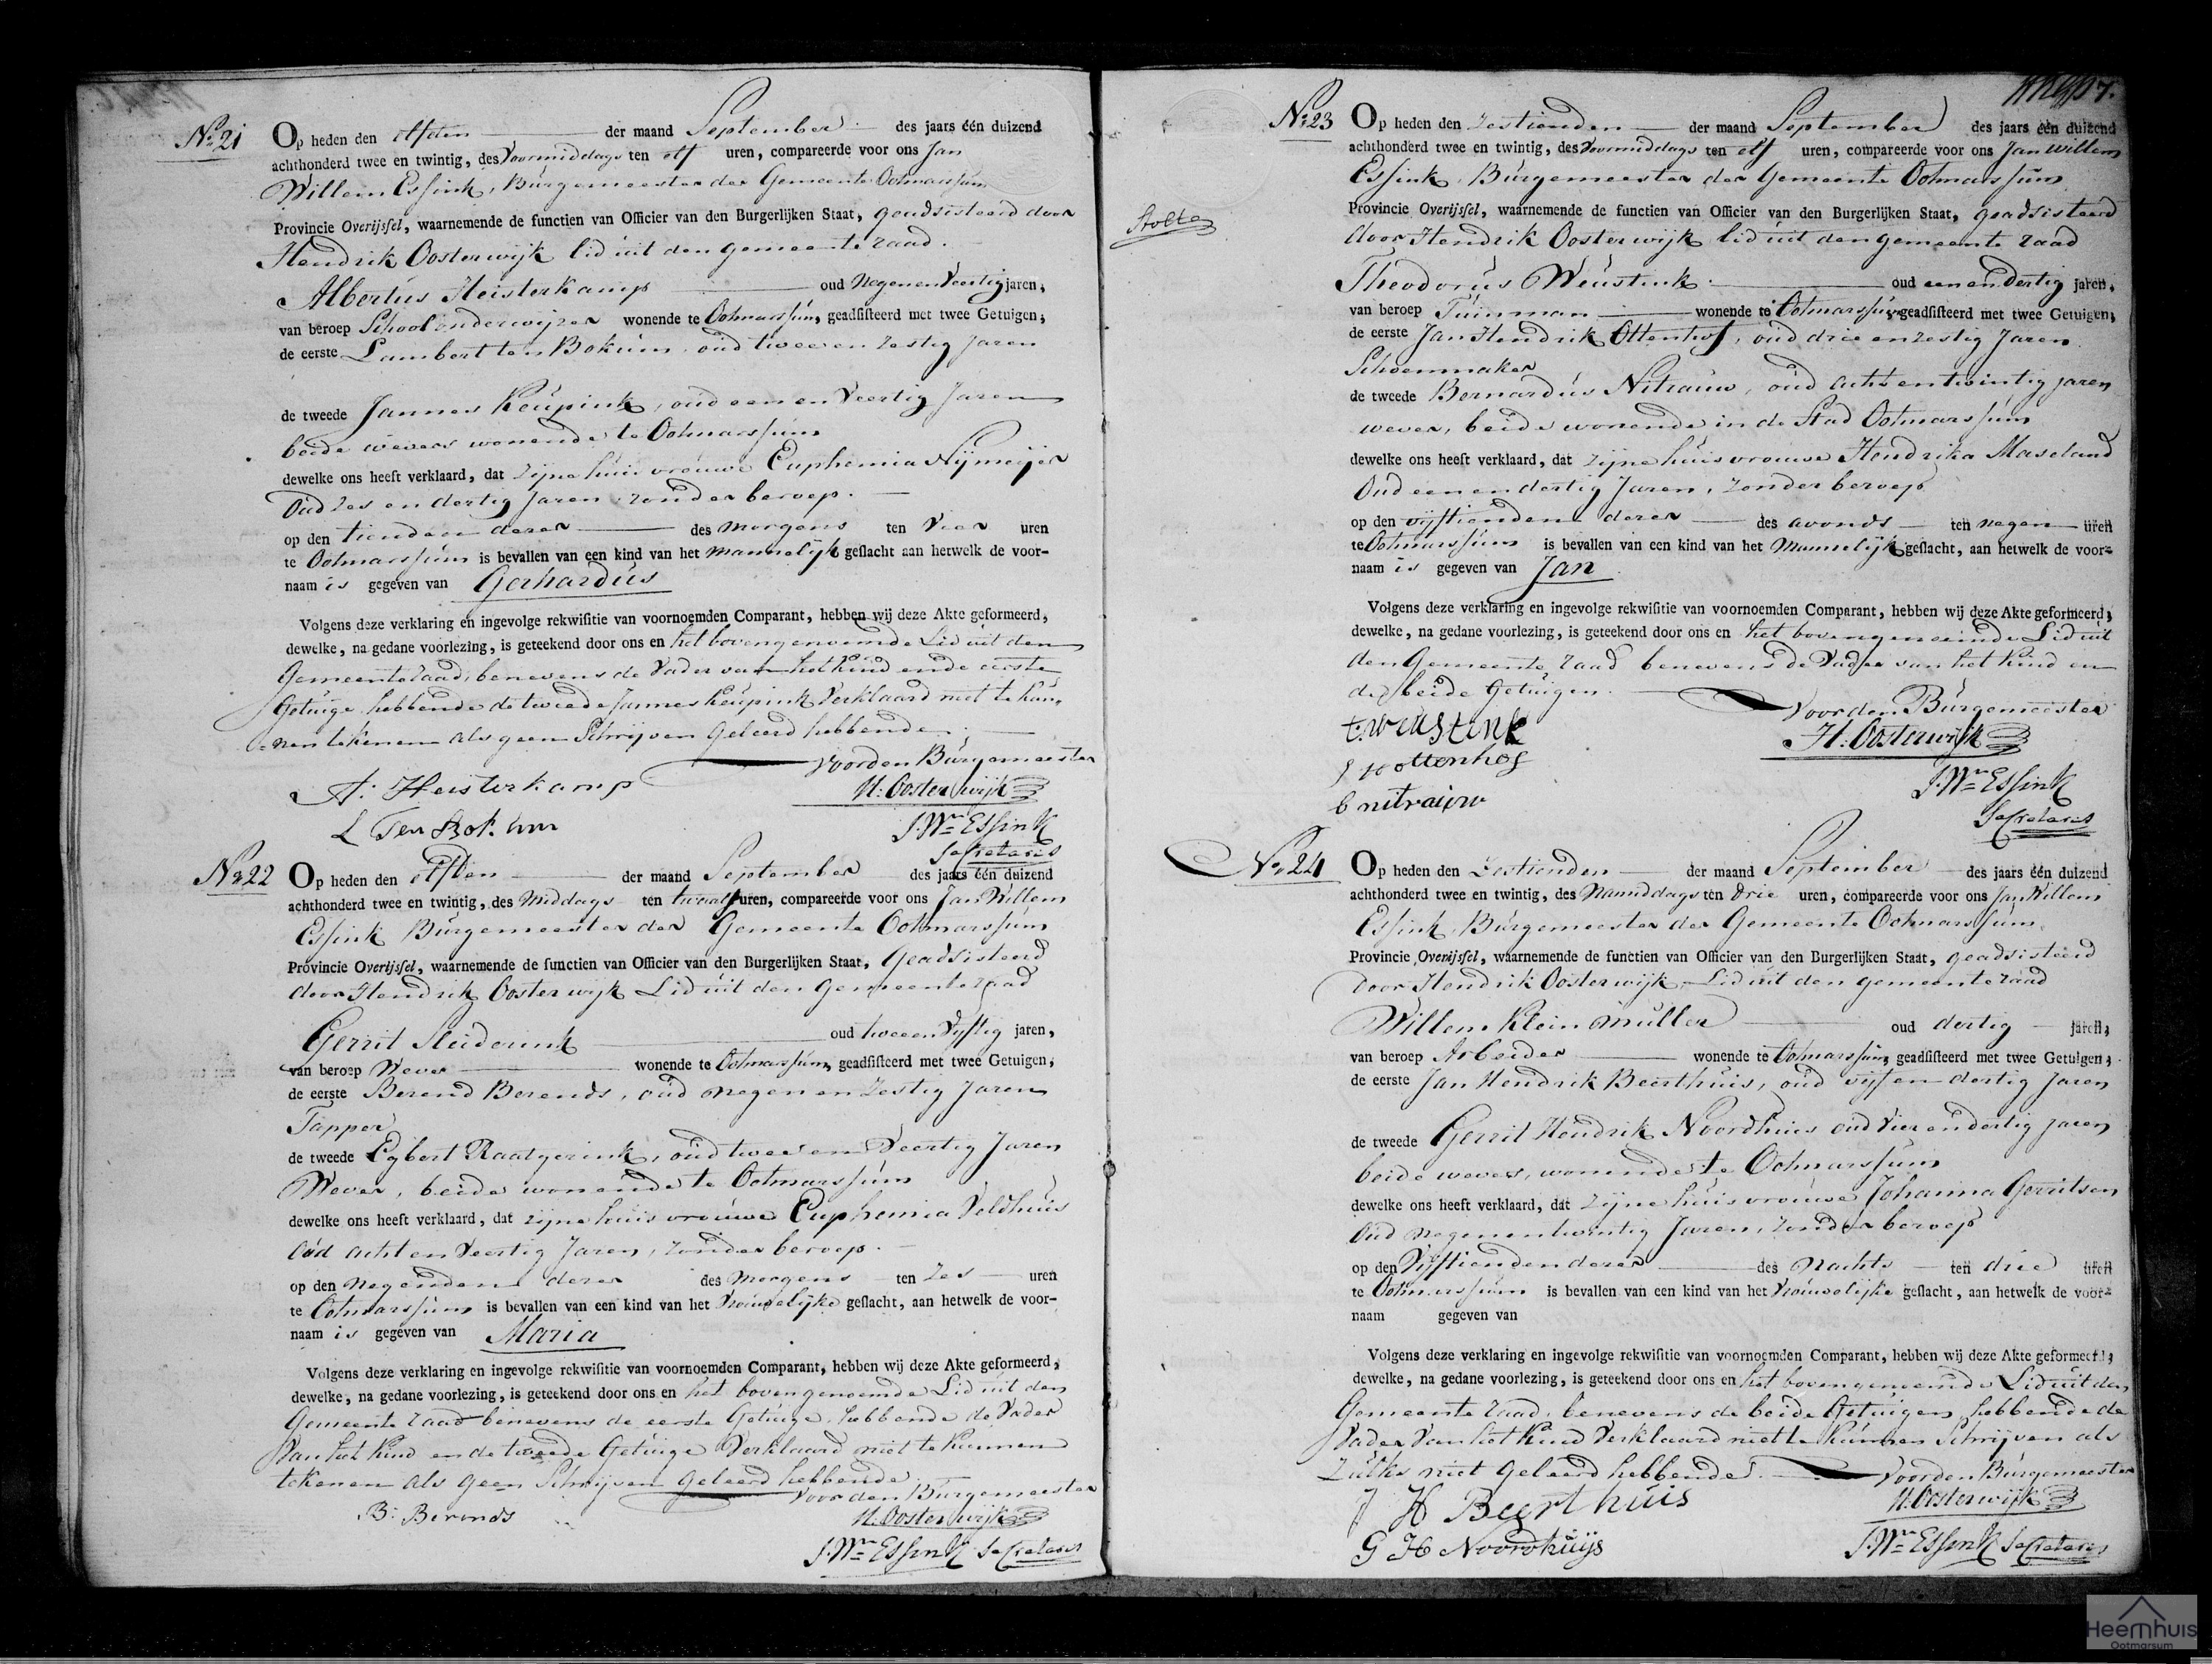 No 21
Op heden den elfden der maand September des jaars één duizend
achthonderd twee en twintig, des Voormiddags ten elf uren, compareerde voor ons Jan
Willem Essink, Burgemeester der Gemeente Ootmarssum
Provincie Overijssel, waarnemende de functien van Officier van den Burgerlijken Staat, geadsisteerd door
Hendrik Oosterwijk lid uit den gemeente raad.
Albertus Heisterkamp oud Negenenveertig jaren,
van beroep Schoolonderwijzer wonende te Ootmarssum, geadsisteerd met twee Getuigen,
de eerste Lambert ten Bokum, oud twee en Zestig Jaren
de tweede Jannes Keupink, oud een en Veertig Jaren
beide wevers wonende te Ootmarssum
dewelke ons heeft verklaard, dat zijne huisvrouwe Euphemia Nijmeijer
Oud Zes en dertig Jaren, zonder beroep.
op den tienden dezer des morgens ten Vier uren
te Ootmarssum is bevallen van een kind van het Mannelijk geslacht aan hetwelk de voor-
naam is gegeven van Gerhardus
Volgens deze verklaring en ingevolge rekwisitie van voornoemden Comparant, hebben wij deze Akte geformeerd,
dewelke, na gedane voorlezing, is geteekend door ons en het bovengenoemde Lid uit den
Gemeenteraad, benevens de Vader van het Kind en de eerste
Getuige hebbende de tweede Jannes Keupink Verklaard niet te kun-
nen tekenen als geen Schrijven Geleerd hebbende.
Voor den Burgemeester
A: Heisterkamp
H: Oosterwijk
L Ten Bokum
J: Wm Essink
Secretaris
No 22
Op heden den elfden der maand September des jaars één duizend
achthonderd twee en twintig, des Middags ten twaalf uren, compareerde voor ons Jan Willem
Essink Burgemeester der Gemeente Ootmarssum
Provincie Overijssel, waarnemende de functien van Officier van den Burgerlijken Staat, Geadsisteerd
door Hendrik Oosterwijk Lid uit den Gemeente raad
Gerrit Sleiderink oud tweeen Vijftig jaren,
van beroep Wever wonende te Ootmarssum, geadsisteerd met twee Getuigen,
de eerste Berend Berends, oud negen en Zestig Jaren
Tapper
de tweede Egbert Raatgerink, oud twee en Veertig Jaren
Wever, beide wonende te Ootmarssum
dewelke ons heeft verklaard, dat zijne huisvrouwe Euphemia Veldhuis
Oud acht en Veertig Jaren, zonder beroep.
op den Negenden dezer des Morgens ten Zes uren
te Ootmarssum is bevallen van een kind van het Vrouwelijke geslacht, aan hetwelk de voor-
naam is gegeven van Maria
Volgens deze verklaring en ingevolge rekwisitie van voornoemden Comparant, hebben wij deze Akte geformeerd,
dewelke, na gedane voorlezing, is geteekend door ons en het bovengenoemde Lid uit den
Gemeente raad benevens de eerste Getuige, hebbende de Vader
Van het Kind en de tweede Getuige Verklaard niet te Kunnen
tekenen als geen Schrijven geleerd hebbende
Voor den Burgemeester
B: Berends
H: Oosterwijk
J: Wm Essink Secretaris
7.
No 23
Op heden den Zestienden der maand September des jaars één duizend
achthonderd twee en twintig, des Voormiddags ten elf uren, compareerde voor ons Jan Willem
Essink, Burgemeester der Gemeente Ootmarssum
Provincie Overijssel, waarnemende de functien van Officier van den Burgerlijken Staat, geadsisteerd
door Hendrik Oosterwijk lid uit den gemeente raad
Theodorus Weustink oud eenendertig jaren,
van beroep Tuinman wonende te Ootmarssum, geadsisteerd met twee Getuigen,
de eerste Jan Hendrik Ottenhof, oud drie en Zestig Jaren
Schoenmaker
de tweede Bernardus Nitrauw, oud acht en twintig jaren
wever, beide wonende in de Stad Ootmarssum
dewelke ons heeft verklaard, dat zijne huisvrouwe Hendrika Maseland
Oud een en dertig Jaren, zonder beroep
op den vijftienden dezer des avonds ten negen uren
te Ootmarssum is bevallen van een kind van het Mannelijk geslacht, aan hetwelk de voor-
naam is gegeven van Jan
Volgens deze verklaring en ingevolge rekwisitie van voornoemden Comparant, hebben wij deze Akte geformeerd,
dewelke, na gedane voorlezing, is geteekend door ons en het bovengenoemde Lid uit
den Gemeente raad benevens de Vader van het Kind en
de beide Getuigen.
Voor den Burgemeester
t: weustink
H: Oosterwijk
J H ottenhof
J: Wm Essink
b nitrauw
Secretaris
No 24
Op heden den Zestienden der maand September des jaars één duizend
achthonderd twee en twintig, des Namiddags ten drie uren, compareerde voor ons Jan Willem
Essink, Burgemeester der Gemeente Ootmarssum
Provincie Overijssel, waarnemende de functien van Officier van den Burgerlijken Staat, geadsisteerd
door Hendrik Oosterwijk, Lid uit den gemeente raad
Willem Klein Muller oud dertig jaren,
van beroep Arbeider wonende te Ootmarssum, geadsisteerd met twee Getuigen,
de eerste Jan Hendrik Beerthuis, oud vijf en dertig Jaren
de tweede Gerrit Hendrik Noordhuis oud Vier en dertig jaren
beide wever, wonende te Ootmarssum
dewelke ons heeft verklaard, dat zijne huisvrouwe Johanna Gerritsen
Oud Negenentwintig Jaren, zonder beroep
op den Vijftienden dezer des Nachts ten drie uren
te Ootmarssum is bevallen van een kind van het Vrouwelijke geslacht, aan hetwelk de voor-
naam gegeven van
Volgens deze verklaring en ingevolge rekwisitie van voornoemden Comparant, hebben wij deze Akte geformeerd,
dewelke, na gedane voorlezing, is geteekend door ons en het bovengenoemde Lid uit den
Gemeente raad, benevens de beide Getuigen, hebbende de
Vader Van het Kind Verklaard niet te Kunnen Schrijven als
zulks niet Geleerd hebbende.
Voor den Burgemeester
J H Beerthuis
H: Oosterwijk
G H Noordhuijs
J: Wm Essink Secretaris
Heemhuis
Ootmarsum